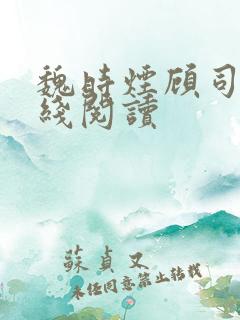 魏時煙顾司
綫閱讀
蘇貞又
未经同意禁止转载